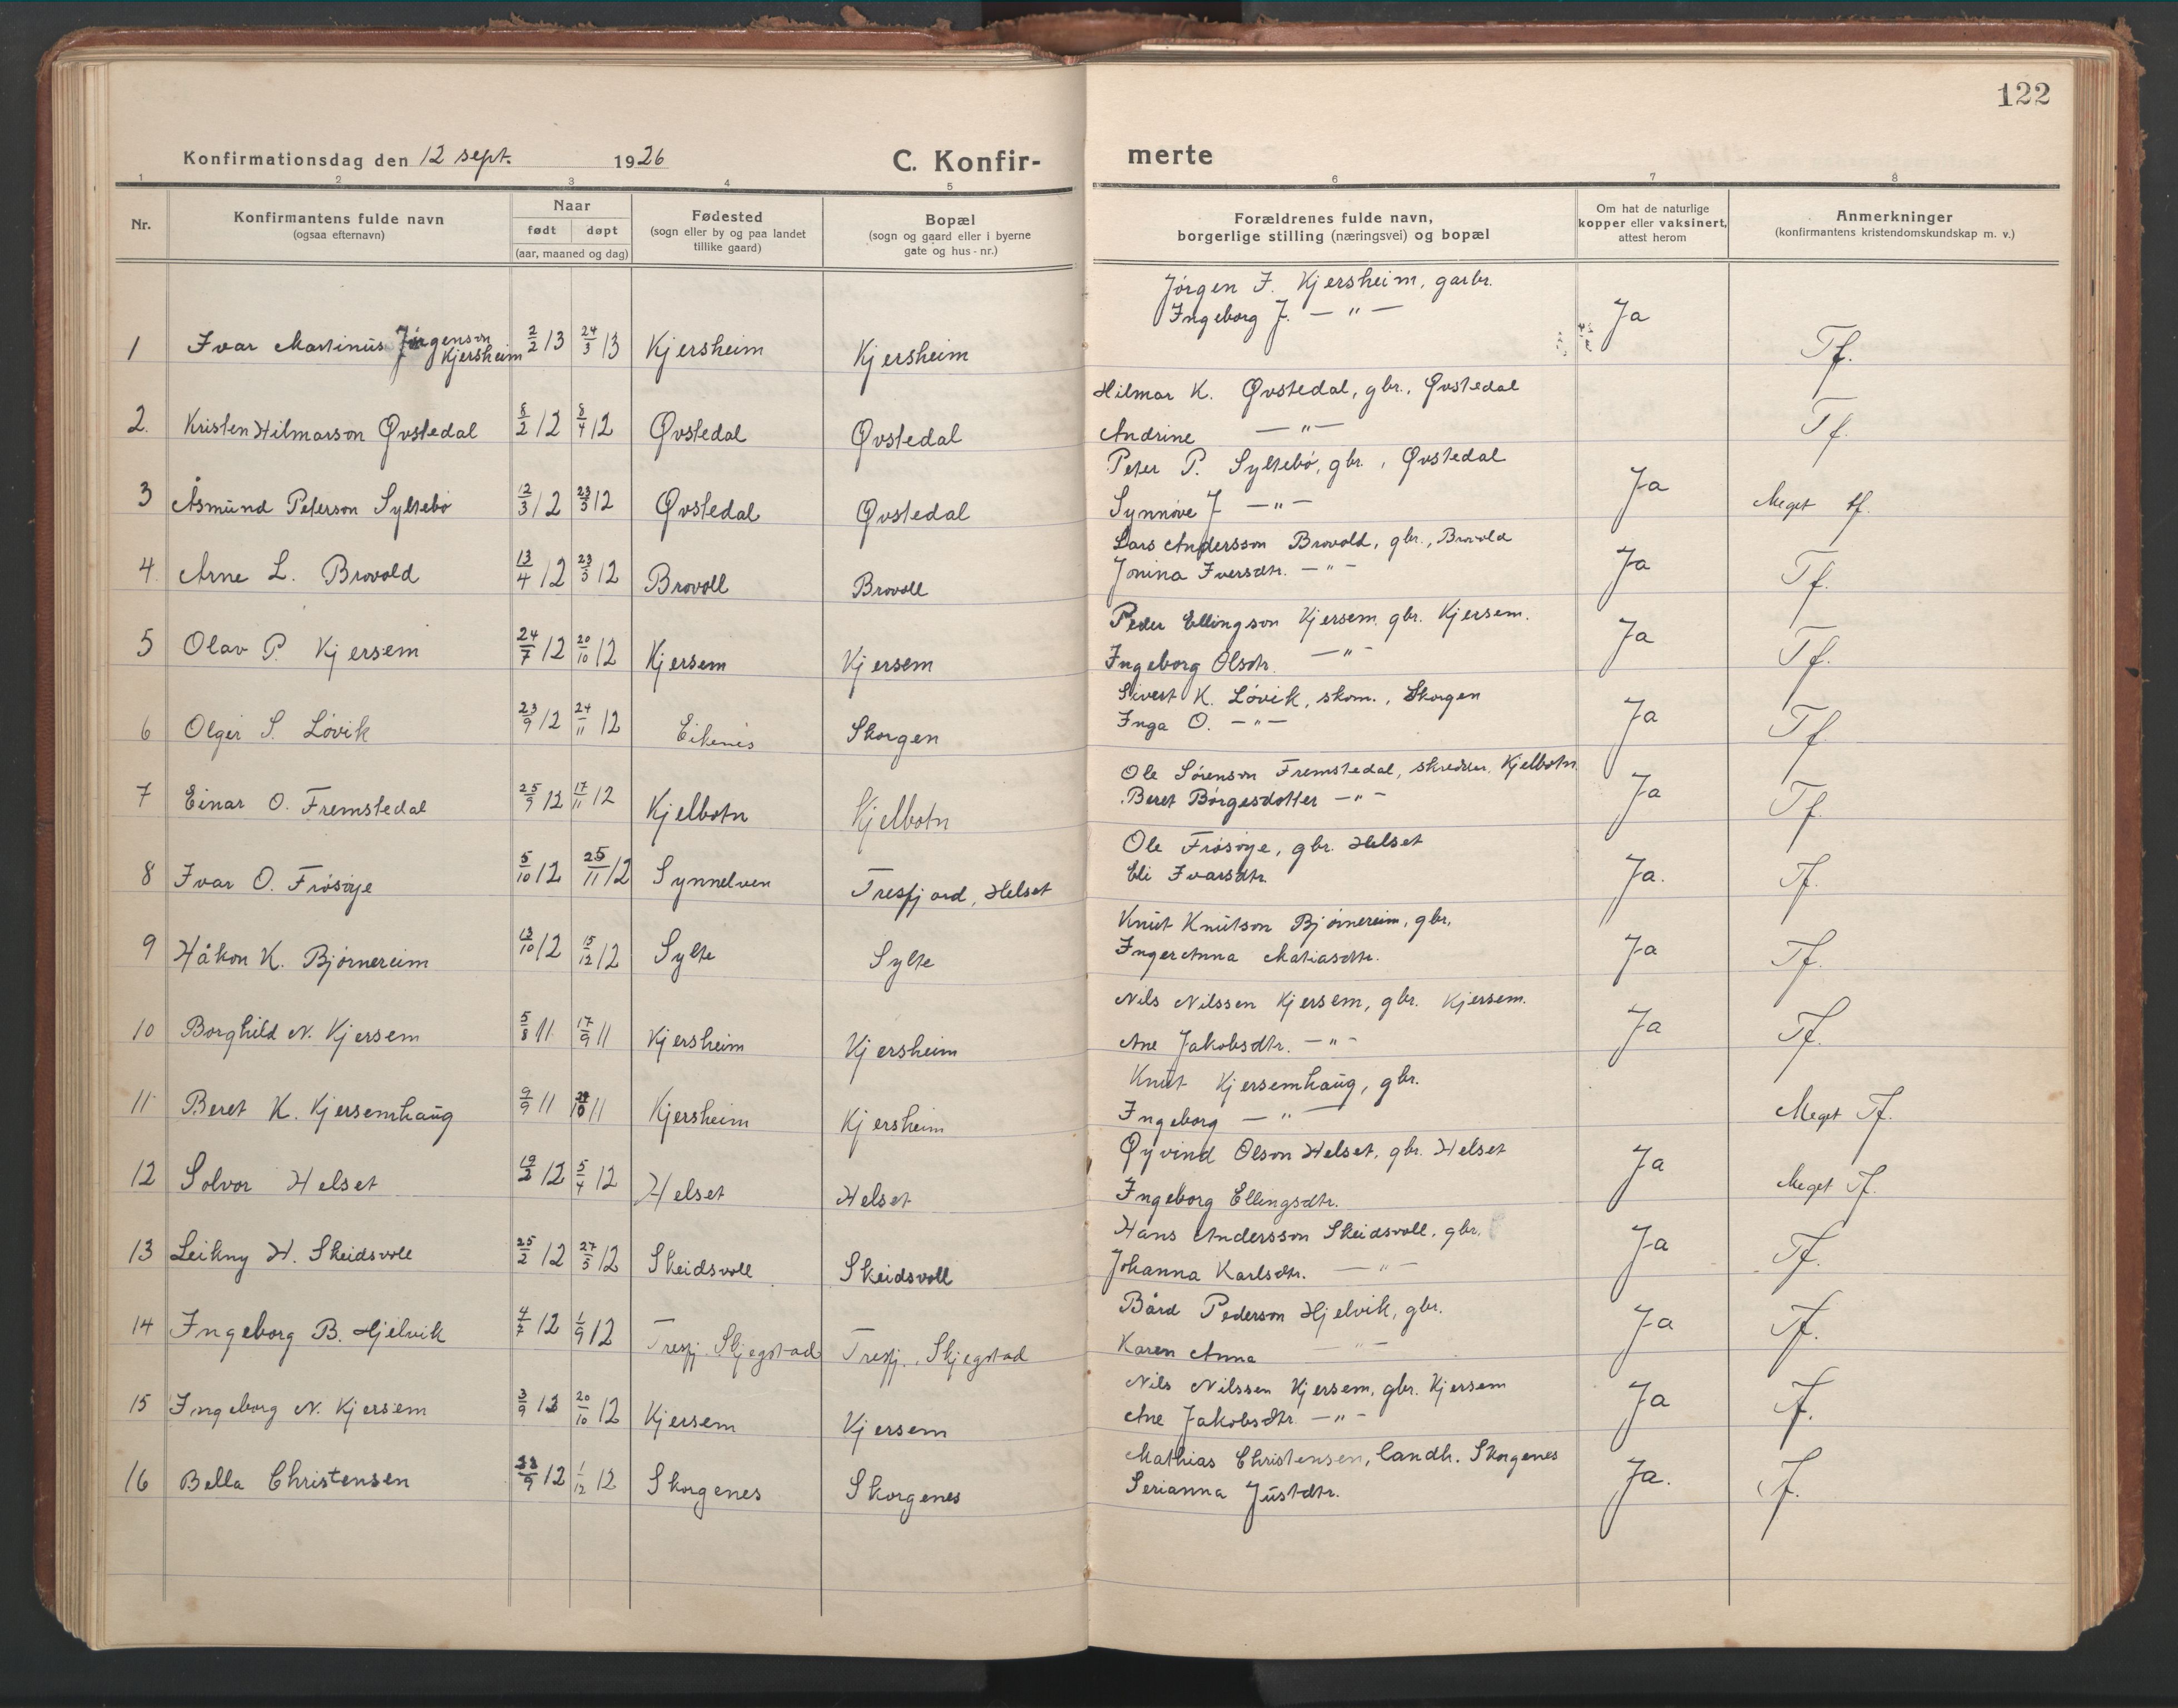 122
Konfirmationsdag den 12 sept. 1926 C. Konfirmerte
1 2 3 4 5 6 7 8
Nr.
Konfirmantens fulde navn
(ogsaa efternavn)
Naar
født døpt
(aar, maaned og dag)
Fødested
(sogn eller by og paa landet
tillike gaard)
Bopæl
(sogn og gaard eller i byerne
gate og hus-nr.)
Forældrenes fulde navn,
borgerlige stilling (næringsvei) og bopæl
Om hat de naturlige
kopper eller vaksinert,
attest herom
Anmerkninger
(konfirmantens kristendomskundskap m. v.)
1 Ivar Martinus Jørgenson Kjersheim 2/2 13 24/3 13 Kjersheim Kjersheim Jørgen I. Kjersheim, garbr. Ja Tf.
Ingeborg J. — " —
2. Kristen Hilmarson Øvstedal 8/2 12 8/4 12 Øvstedal Øvstedal Hilmar K. Øvstedal, gbr., Øvstedal Tf.
Andrine — " —
3 Åsmund Peterson Syltebø 12/3 12 23/3 12 Øvstedal Øvstedal Peter P. Syltebø, gbr., Øvstedal Ja Meget tf.
Synnøve J — " —
4. Arne L. Brovold 13/4 12 23/3 12 Brovoll Brovoll Lars Andersson Brovold, gbr., Brovold Ja Tf.
Jonina Iversdtr. — " —
5 Olav P. Kjersem 24/7 12 20/10 12 Kjersem Kjersem Peder Ellingson Kjersem gbr. Kjersem. Ja Tf.
Ingeborg Olsdtr. — " —
6 Olger S. Løvik 23/9 12 24/11 12 Eikenes Skorgen Sivert K. Løvik, skom., Skorgen Ja Tf
Inga O. — " —
7 Einar O. Fremstedal 25/9 12 17/11 12 Kjelbotn Kjelbotn Ole Sørenson Fremstedal, skredder, Kjelbotn Ja Tf
Beret Børgesdotter — " —
8 Ivar O. Frøsøye 5/10 12 25/11 12 Synnelven Tresfjord, Helset Ole Frøsøye, gbr. Helset Ja. Tf.
Eli Ivarsdtr.
9 Håkon K. Bjørnereim 13/10 12 15/12 12 Sylte Sylte Knut Knutson Bjørnereim, gbr. Ja Tf.
Inger Anna Matiasdtr.
10 Borghild N. Kjersem 5/8 11 17/9 11 Kjersheim Kjersheim Nils Nilssen Kjersem, gbr. Kjersem. Ja Tf.
Ane Jakobsdtr. — " —
11 Beret K. Kjersemhaug 9/9 11 /10 11 Kjersheim Kjersheim Knut Kjersemhaug, gbr. Meget Tf.
Ingeborg — " —
12 Solvor Helset 19/2 12 5/4 12 Helset Helset Øyvind Olson Helset, gbr. Helset Ja Meget Tf.
Ingeborg Ellingsdtr.
13 Leikny H. Skeidsvoll 25/2 12 27/5 12 Skeidsvoll Skeidsvoll Hans Andersson Skeidsvoll, gbr. Ja Tf.
Johanna Karlsdtr. — " —
14 Ingeborg B. Hjelvik 4/7 12 1/9 12 Tresfj. Skjegstad Tresfj. Skjegstad Bård Pederson Hjelvik, gbr. Ja Tf.
Karen Anna — " —
15 Ingeborg N. Kjersem 3/9 12 20/10 12 Kjersem Kjersem Nils Nilssen Kjersem, gbr. Kjersem Ja Tf.
Ane Jakobsdtr. — " —
16 Bella Christensen 23/9 12 1/12 12 Skorgenes Skorgenes Mathias Christensen, landh. Skorgenes Ja. Tf.
Serianna Justdtr.